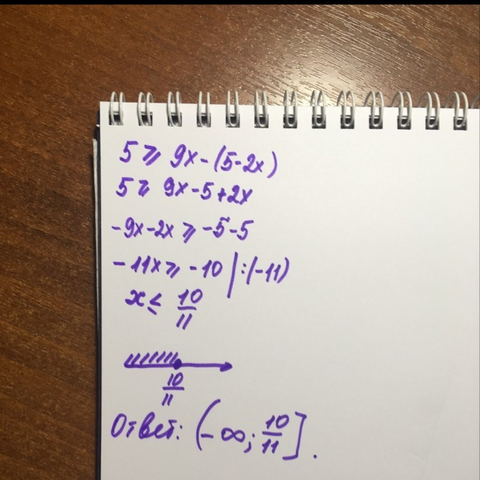 5 ⩾ 9x-(5-2x)
5 ⩾ 9x-5+2x
-9x-2x ⩾ -5-5
-11x ⩾ -10 | :(-11)
x ≤ 10/11
10/11
Ответ: (-∞; 10/11].